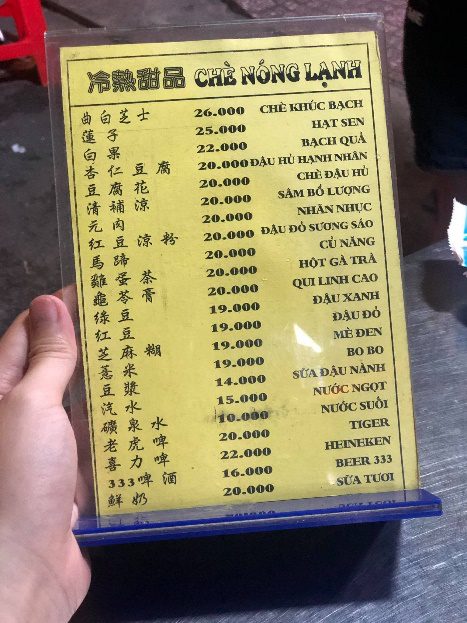 冷熱甜品 CHÈ NÓNG LẠNH
曲白芝士 26.000 CHÈ KHÚC BẠCH
蓮子 25.000 HẠT SEN
白果 22.000 BẠCH QUẢ
杏仁豆腐 20.000 ĐẬU HỦ HẠNH NHÂN
豆腐花 20.000 CHÈ ĐẬU HỦ
清補涼 20.000 SÂM BỔ LƯỢNG
元肉 20.000 NHÃN NHỤC
紅豆涼粉 20.000 ĐẬU ĐỎ SƯƠNG SÁO
馬蹄 20.000 CỦ NĂNG
雞蛋茶 20.000 HỘT GÀ TRÀ
龜苓膏 20.000 QUI LINH CAO
綠豆 19.000 ĐẬU XANH
紅豆 19.000 ĐẬU ĐỎ
芝麻糊 19.000 MÈ ĐEN
薏米 19.000 BO BO
豆漿 14.000 SỮA ĐẬU NÀNH
汽水 15.000 NƯỚC NGỌT
礦泉水 10.000 NƯỚC SUỐI
老虎啤 20.000 TIGER
喜力啤 22.000 HEINEKEN
333啤酒 16.000 BEER 333
鮮奶 20.000 SỮA TƯƠI